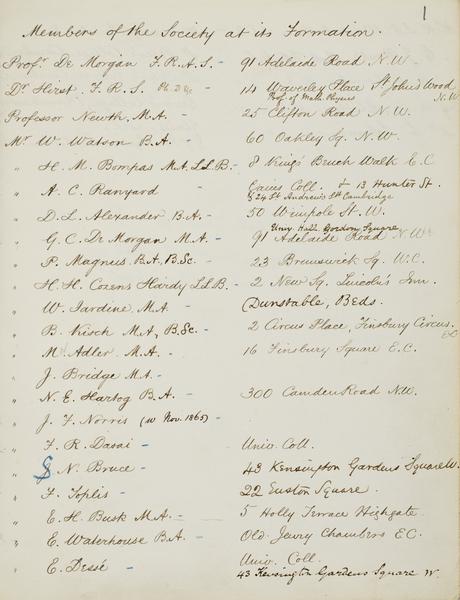 1
Members of the Society at its Formation.
Profr. De Morgan F.R.A.S. - 91 Adelaide Road N.W.
Dr Hirst. F.R.S. Ph.D &c 14 Waverley Place St John's Wood N.W.
Prof. of Math. Physics
Professor Newth M.A. 25 Clifton Road N.W.
Mr W. Watson B.A. - 60 Oakley Sq. N.W.
" H. M. Bompas M.A. LL.B. - 8 King's Bench Walk E.C
" A. C. Ranyard - Caius Coll. & 13 Hunter St.
& 24 St Andrew's St Cambridge
" D. L. Alexander B.A. - 50 Wimpole St. W.
Univ. Hall. Gordon Square
" G. C. De Morgan M.A. - 91 Adelaide Road N.W.
" P. Magnus B.A. B.Sc. - 23 Brunswick Sq. W.C.
" H. H. Cozens Hardy LL.B. - 2 New Sq. Lincoln's Inn.
" W. Jardine M.A. (Dunstable, Beds.
" B. Kisch M.A, B.Sc. - 2 Circus Place, Finsbury Circus. EC
" M. Adler M.A. - 16 Finsbury Square E.C.
" J. Bridge M.A. -
" N. E. Hartog B.A. - 300 Camden Road N.W.
" J. F. Norris (w Nov. 1865) -
" F. R. Dasai - Univ. Coll.
" N. Bruce - 43 Kensington Gardens Square W.
" F. Toplis - 22 Euston Square.
" E. H. Busk M.A. - 5 Holly Terrace Highgate
" E. Waterhouse B.A. - Old Jewry Chambers E.C.
" E. Dessé - Univ. Coll.
43 Kensington Gardens Square W.